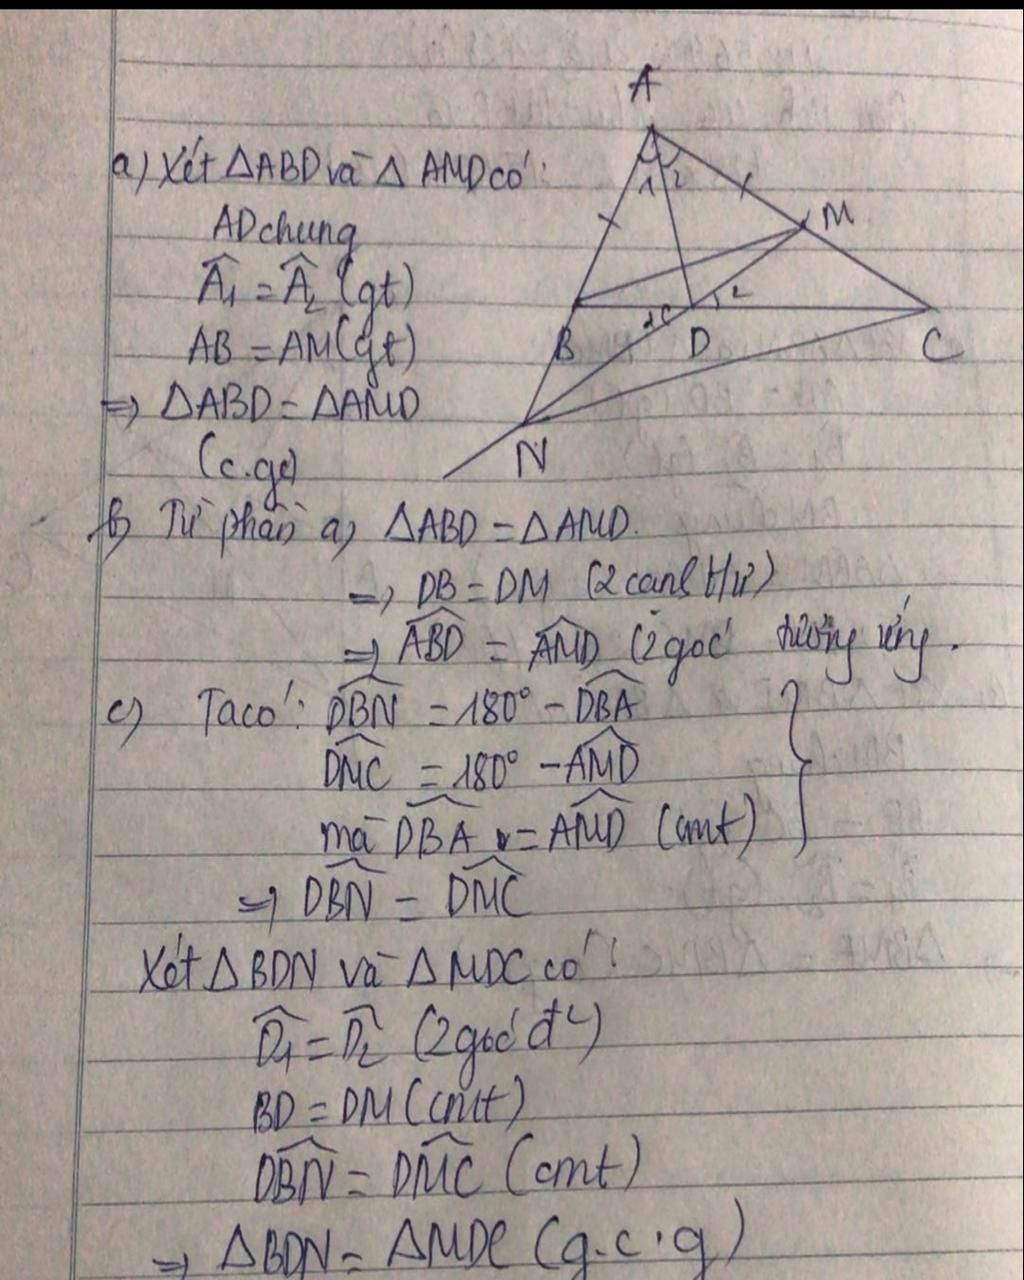 A
a) Xét ΔABD và Δ AMD có:
1 2
M
AD chung
Â₁ = Â₂ (gt)
2
B D C
AB = AM (gt)
⇒ ΔABD = ΔAMD
(c.gc)
N
b) Từ phần a) ΔABD = ΔAMD.
⇒ DB = DM (2 cạnh t/ứ)
⇒ \widehat{ABD} = \widehat{AMD} (2 góc tương ứng.
c) Ta có: \widehat{DBN} = 180° - \widehat{DBA}
\widehat{DMC} = 180° - \widehat{AMD}
mà \widehat{DBA} = \widehat{AMD} (cmt)
⇒ \widehat{DBN} = \widehat{DMC}
Xét ΔBDN và ΔMDC có:
\widehat{D₁} = \widehat{D₂} (2 góc đ²)
BD = DM (cmt)
\widehat{DBN} = \widehat{DMC} (cmt)
⇒ ΔBDN = ΔMDC (g.c.g)